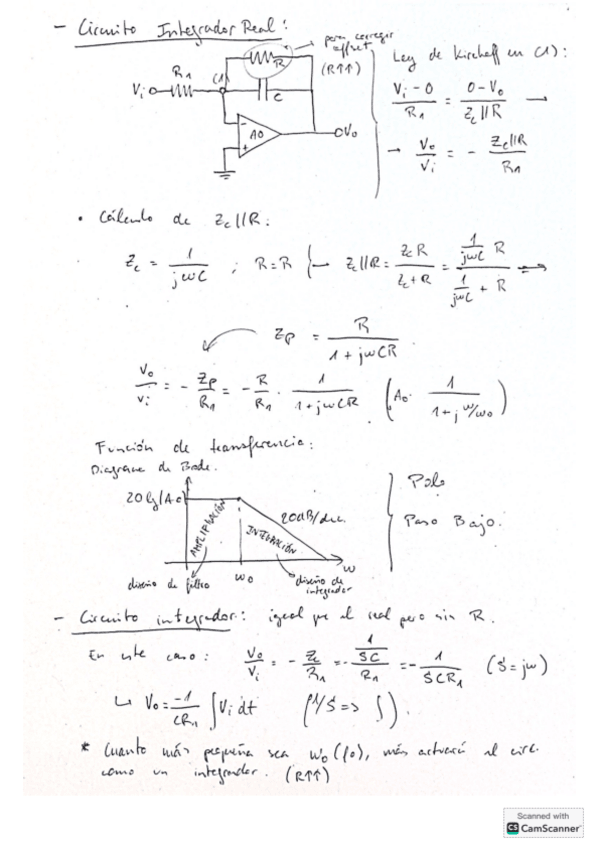 - Circuito Integrador Real:
para corregir offset (R↑↑)
R
R1
(1)
Vi
C
AO
-
+
Vo
Ley de Kirchoff en (1):
(Vi - 0)/R1 = (0 - Vo)/(Zc//R) →
→ Vo/Vi = - (Zc//R)/R1
• Cálculo de Zc//R:
Zc = 1/(jωC) ; R = R } → Zc//R = (Zc R)/(Zc + R) = (1/(jωC) R)/(1/(jωC) + R) ⇔
Zp = R/(1 + jωCR)
Vo/Vi = - Zp/R1 = - R/R1 · 1/(1 + jωCR) (Ao · 1/(1 + j ω/ωo))
Función de transferencia:
Diagrama de Bode.
20 lg |Ao|
AMPLIFICACIÓN
INTEGRACIÓN
20dB/dec.
ω
ωo
diseño de filtro
diseño de integrador
Polo
Paso Bajo.
- Circuito integrador: igual que el real pero sin R.
En este caso: Vo/Vi = - Zc/R1 = - (1/SC)/R1 = - 1/(SCR1) (S = jω)
↳ Vo = -1/(CR1) ∫ Vi dt (1/S => ∫).
* Cuanto más pequeña sea ωo (fo), más actuará el circ.
como un integrador. (R↑↑)
Scanned with
CS CamScanner